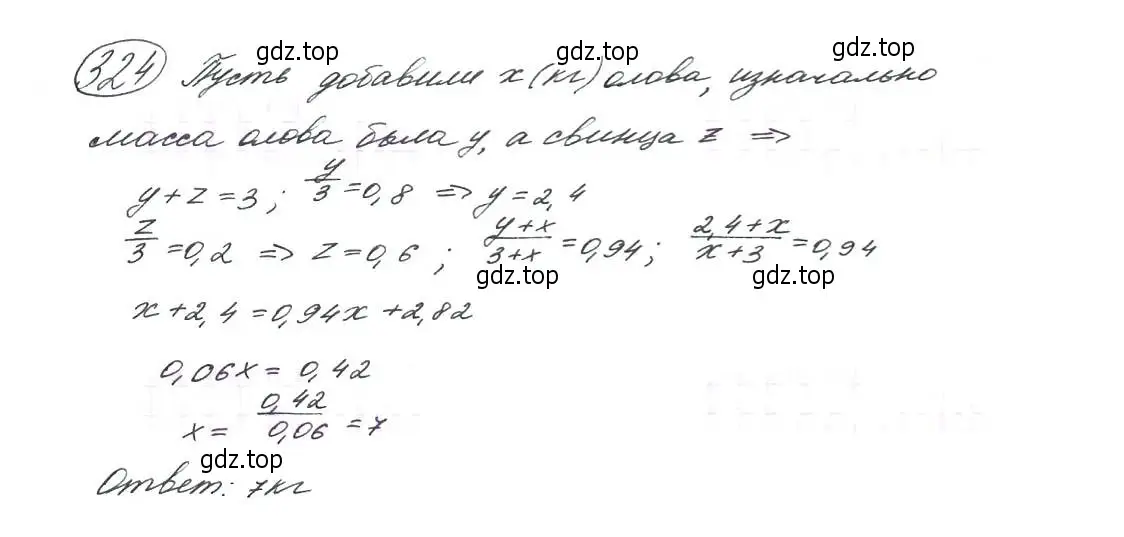 324 Пусть добавили x (кг) олова, изначально
масса олова была y, а свинца z ⇒
y + z = 3; y/3 = 0,8 ⇒ y = 2,4
z/3 = 0,2 ⇒ z = 0,6; (y+x)/(3+x) = 0,94; (2,4+x)/(x+3) = 0,94
x + 2,4 = 0,94x + 2,82
0,06x = 0,42
x = 0,42/0,06 = 7
Ответ: 7кг
gdz.top
gdz.top
gdz.top
gdz.top
gdz.top
gdz.top
gdz.top